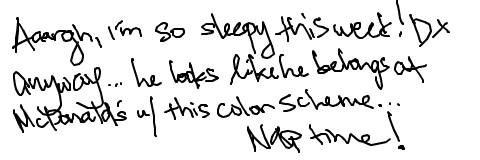 Aaargh, I'm so sleepy this week! DX
anyway... he looks like he belongs at
McDonald's w/ this color scheme...
Nap time!